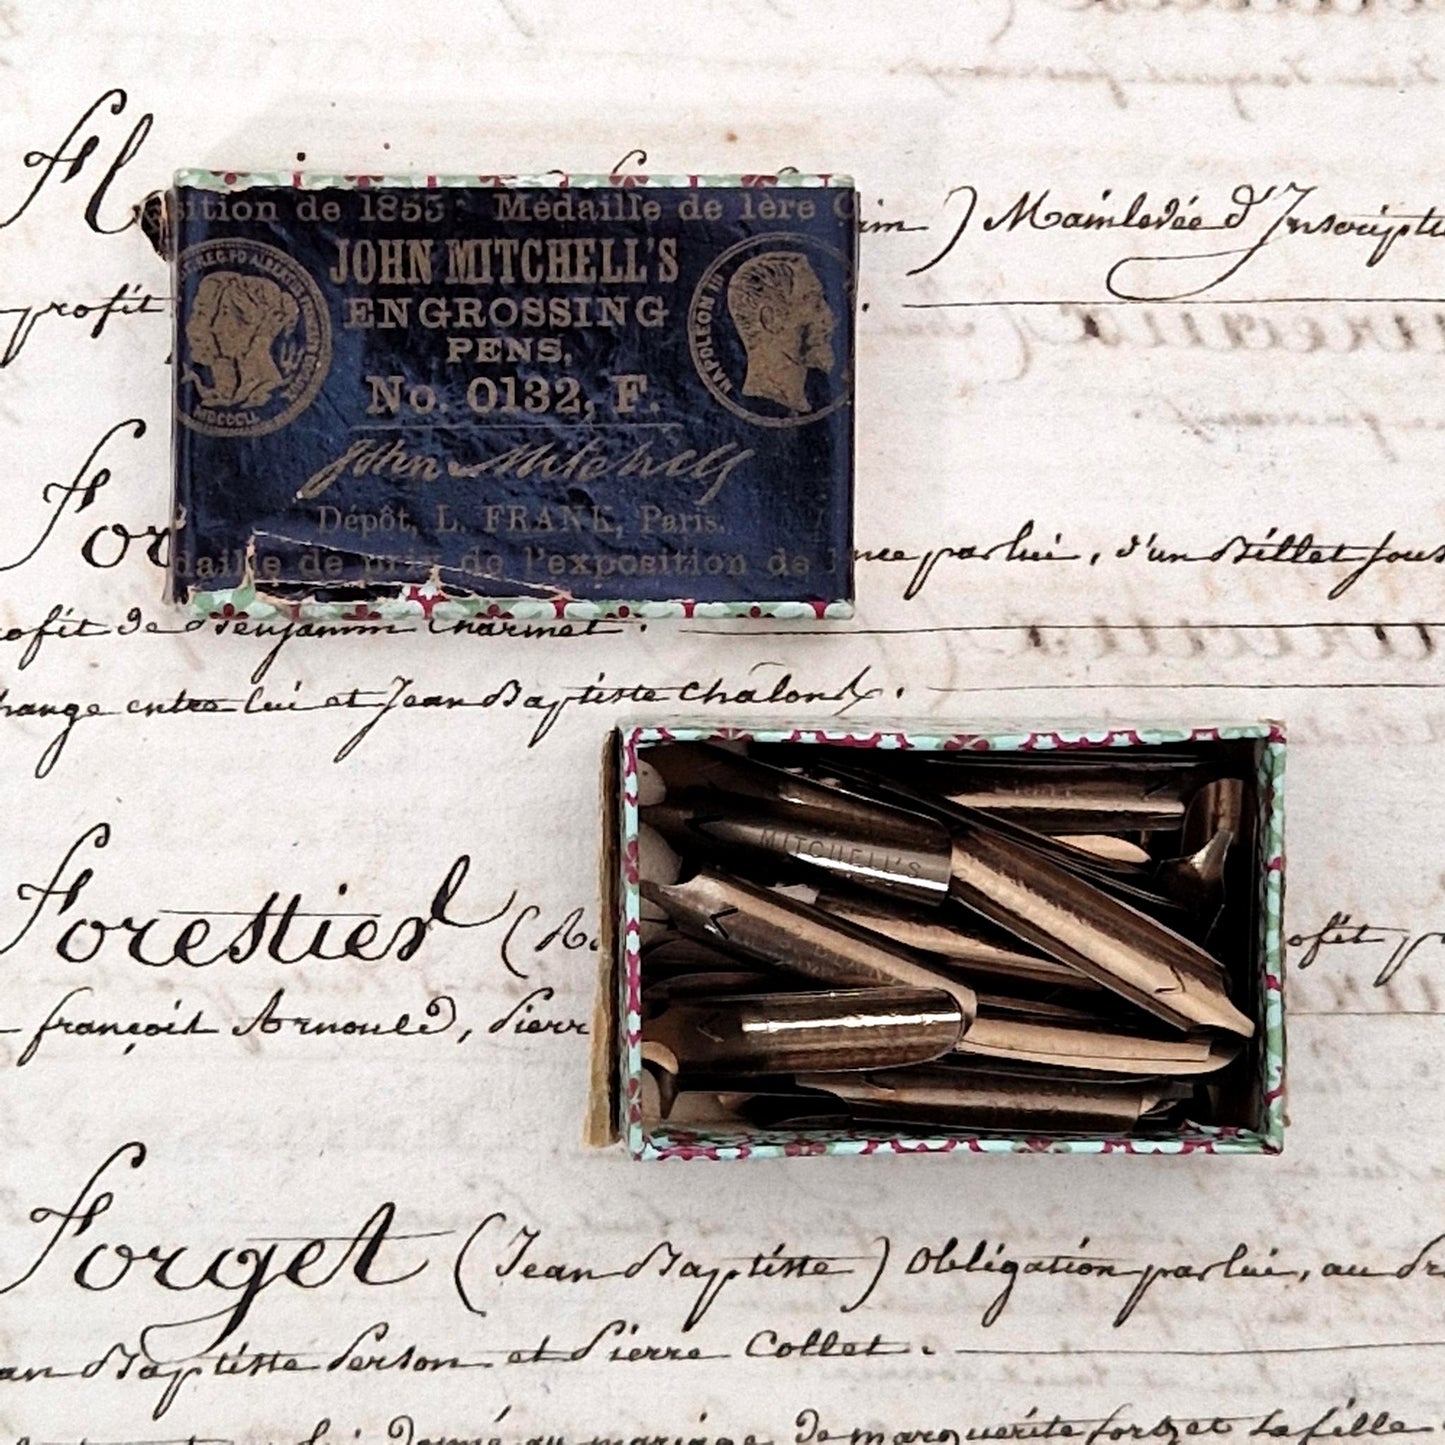 sition de 1855 Médaille de 1ère
JOHN MITCHELL'S
ENGROSSING
PENS,
No. 0132, F.
John Mitchell
Dépôt, L. FRANK, Paris.
daille de prix de l'exposition de
NAPOLEON III
MDCCCLI
) Mainlevée d'Inscripti
profit
par lui, d'un Billet sous
ofit de Benjamin Charmet.
hange entre lui et Jean Baptiste Chalons.
MITCHELL'S
Forestier (
ofit p
françois Arnould, Pierr
Forget (Jean Baptiste) Obligation par lui, au
an Baptiste Person et Pierre Collet.
donné au mariage De marguerite forget sa fille